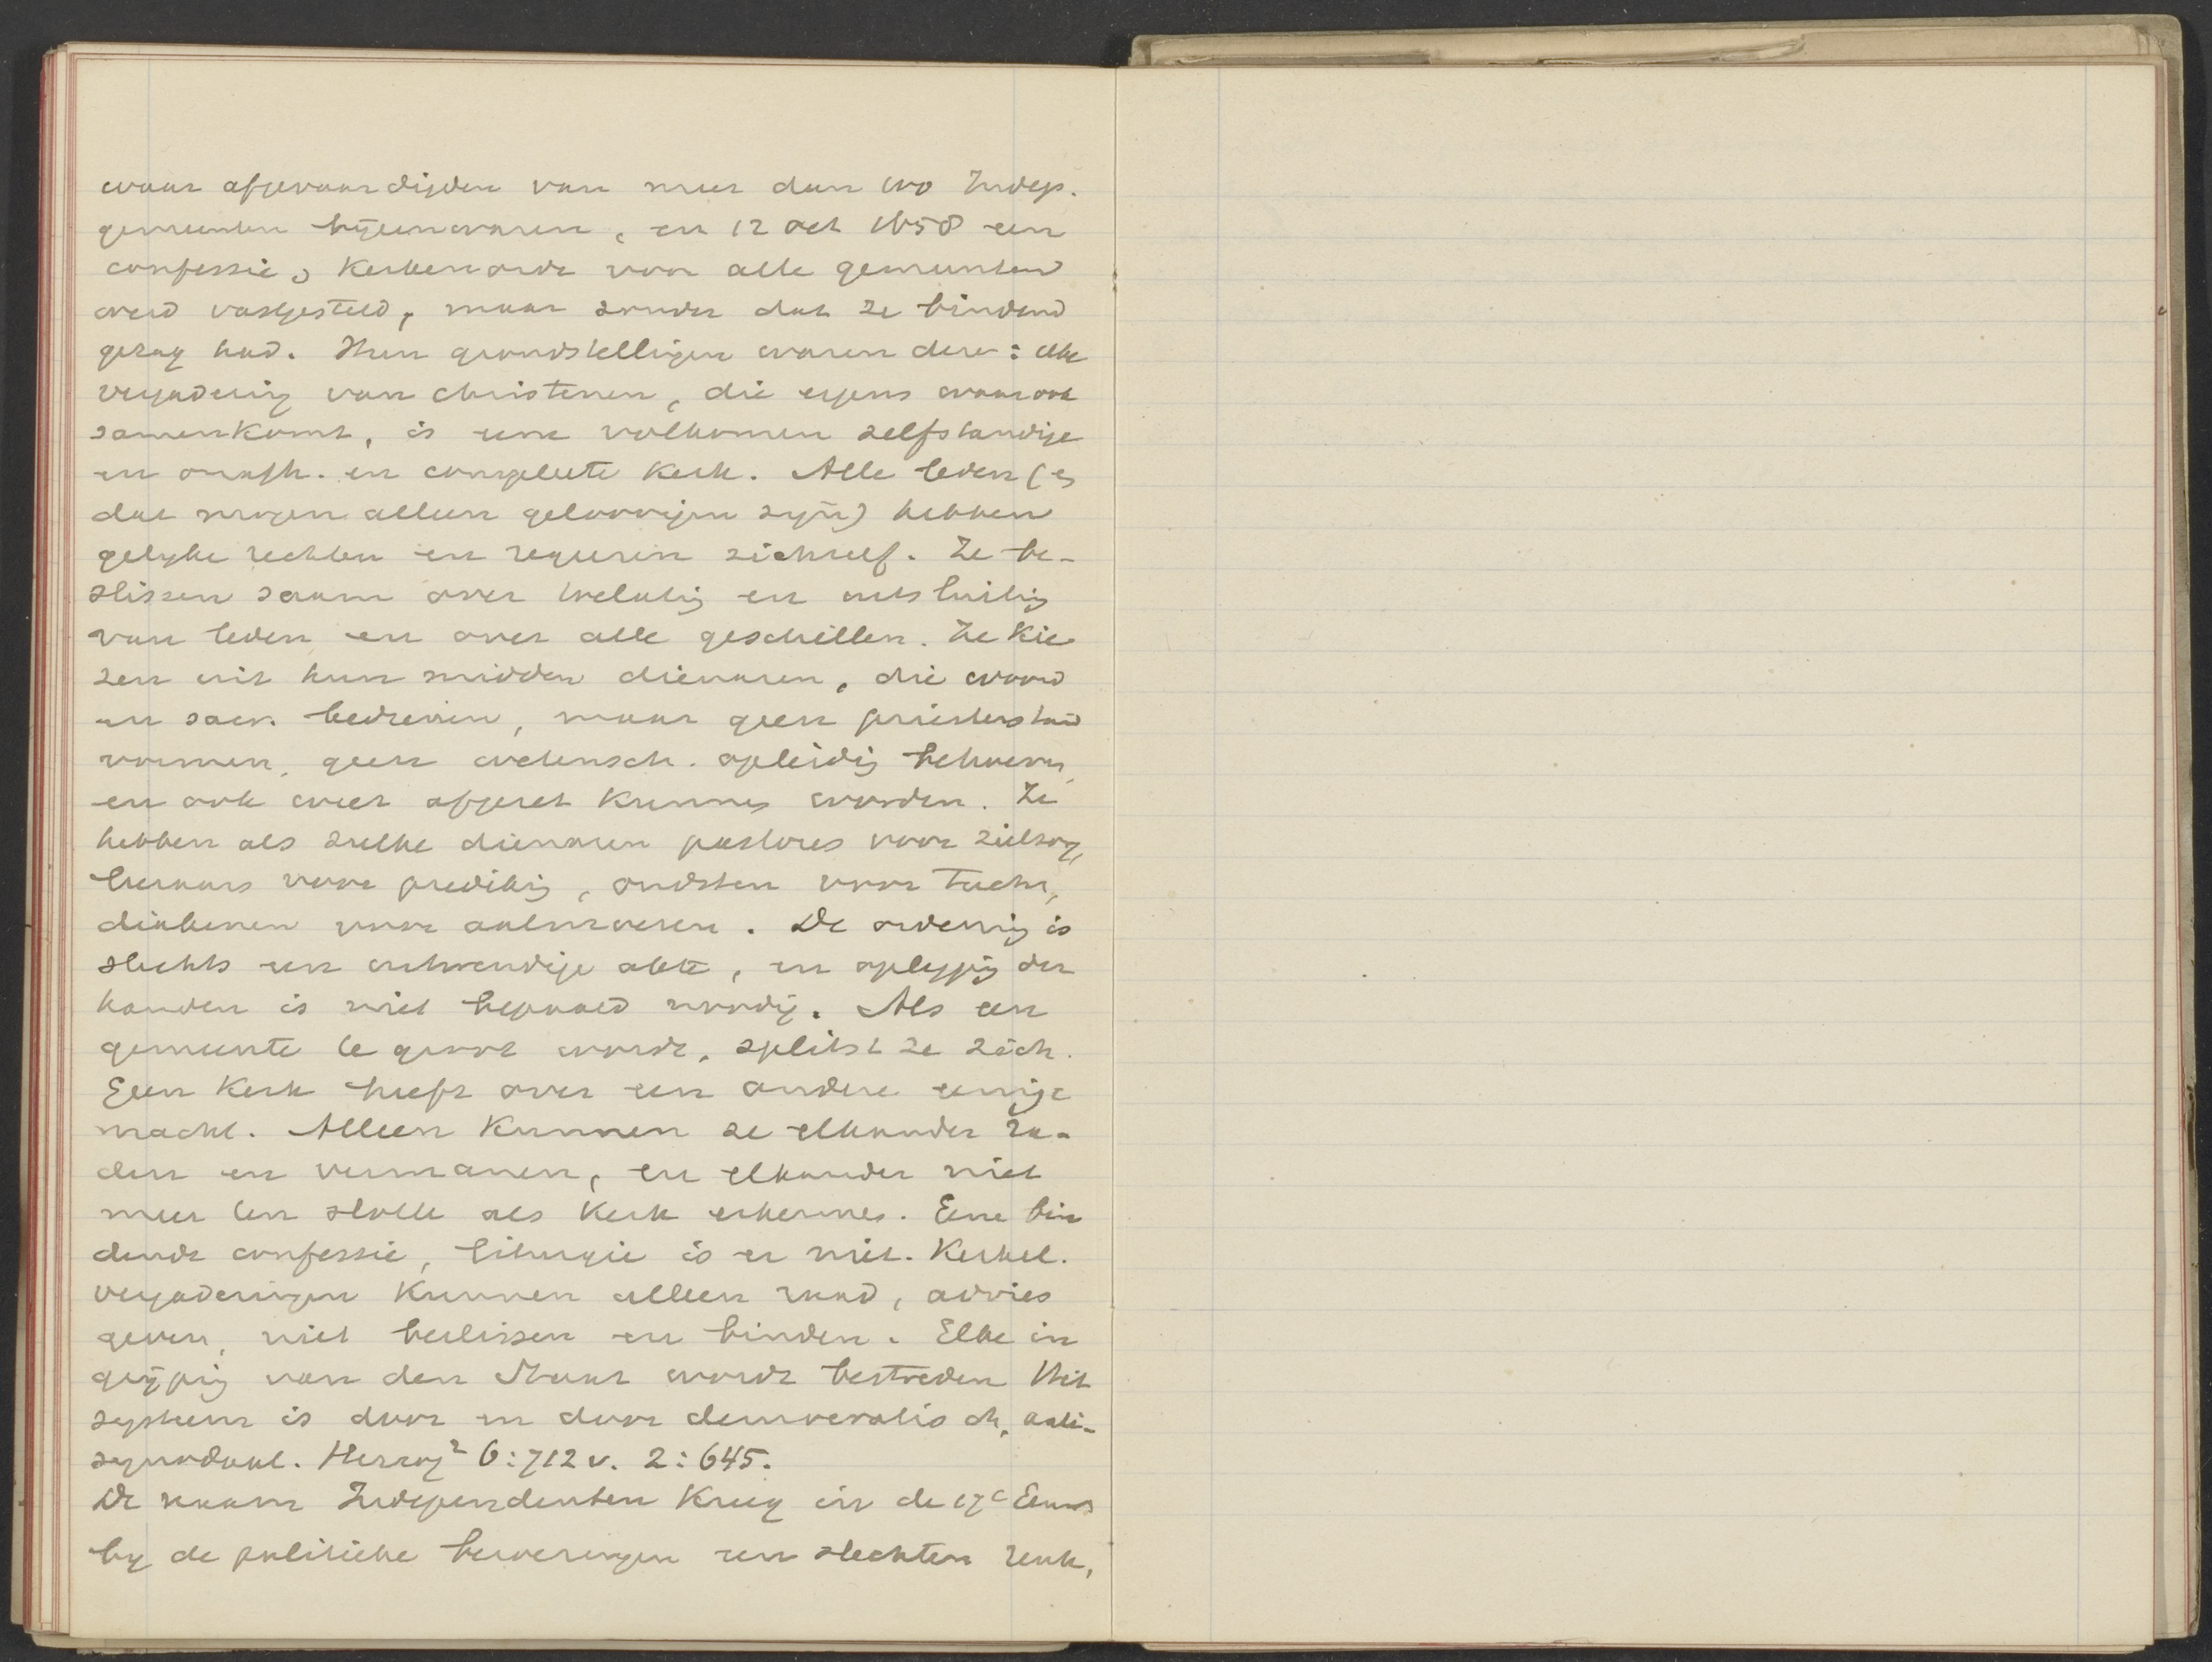 waar afgevaardigden van meer dan 100 Indep.
gemeenten bijeenwaren, en 12 Oct 1658 een
confessie en Kerkenorde voor alle gemeenten
werd vastgesteld, maar zonder dat ze bindend
gezag had. Hun grondstellingen waren deze: elke
vergadering van Christenen, die ergens waar ook
samenkomt, is eene volkomen zelfstandige
en onafh. en compleete Kerk. Alle leden (en
dat mogen alleen geloovigen zijn) hebben
gelyke rechten en regeeren zichzelf. Ze be-
slissen saam over toelatig en uitsluitig
van leden en over alle geschillen. Ze kie
zen uit hun midden dienaren, die woord
en sacr. bedienen, maar geen priesterstand
vormen, geen wetensch. opleidig behoeven,
en ook weer afgezet kunnen worden. Ze
hebben als zulke dienaren pastores voor zielzorg,
leeraars voor predikig, oudsten voor tucht,
diakenen voor aalmoezen. De ordening is
slechts een uitwendige akte, en oplegging der
handen is niet bepaald noodig. Als een
gemeente te groot wordt, splitst ze zich.
Geen Kerk heeft over een andere eenige
macht. Alleen Kunnen ze elkander ra-
den en vermanen, en elkander niet
meer ten slotte als Kerk erkennen. Eene bin
dende confessie, liturgie is er niet. Kerkel.
vergaderingen Kunnen alleen raad, advies
geven, niet beslissen en binden. Elke in
grijpig van den Staat wordt bestreden Het
systeem is door en door democratisch, anti-
synodaal. Herzog² 6:712 v. 2:645.
De naam Independenten Kreeg in de 17e Eeuw
by de politieke beweringen een slechten reuk,